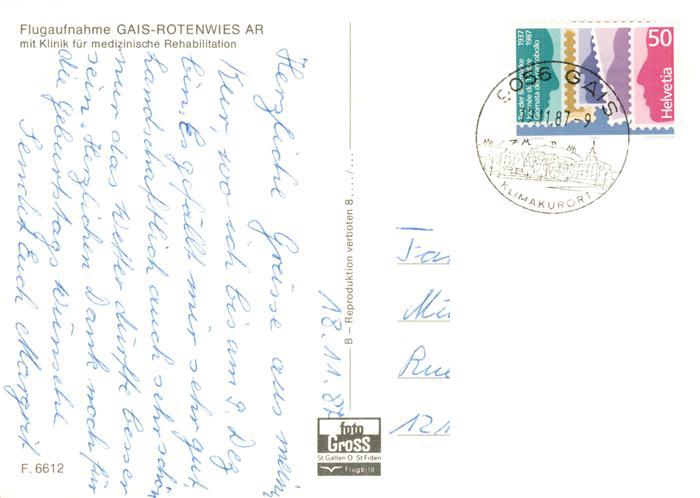 Flugaufnahme GAIS-ROTENWIES AR
mit Klinik für medizinische Rehabilitation
Herzliche Grüsse aus mein
Kur, wo ich bis am 9. Dez
bin. Es gefällt mir sehr gut
landschaftlich auch sehr schön
nur das Wetter dürfte besser
sein. Herzlichen Dank noch für
die Geburtstags wünsche
Sendet Euch Margrit
18.11.87
F. 6612
B – Reproduktion verboten 8..../....
foto
Gross
St Gallen O St Fiden
Flugbild
1937
1987
Tag der Briefmarke
Journée du timbre
Giornata del francobollo
50
Helvetia
9056 GAIS
11.87-9
KLIMAKURORT
Fa
Mü
Ru
121